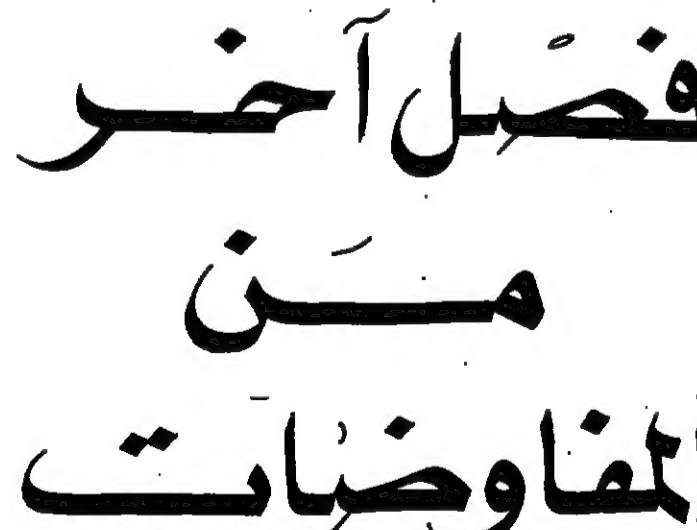 فصل آخر
من
المفاوضات